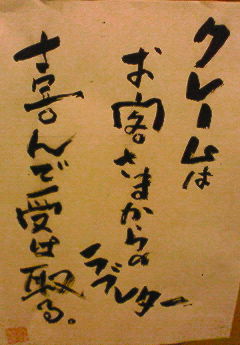 クレームは
お客さまからの
ラブレター
喜んで受け取る。